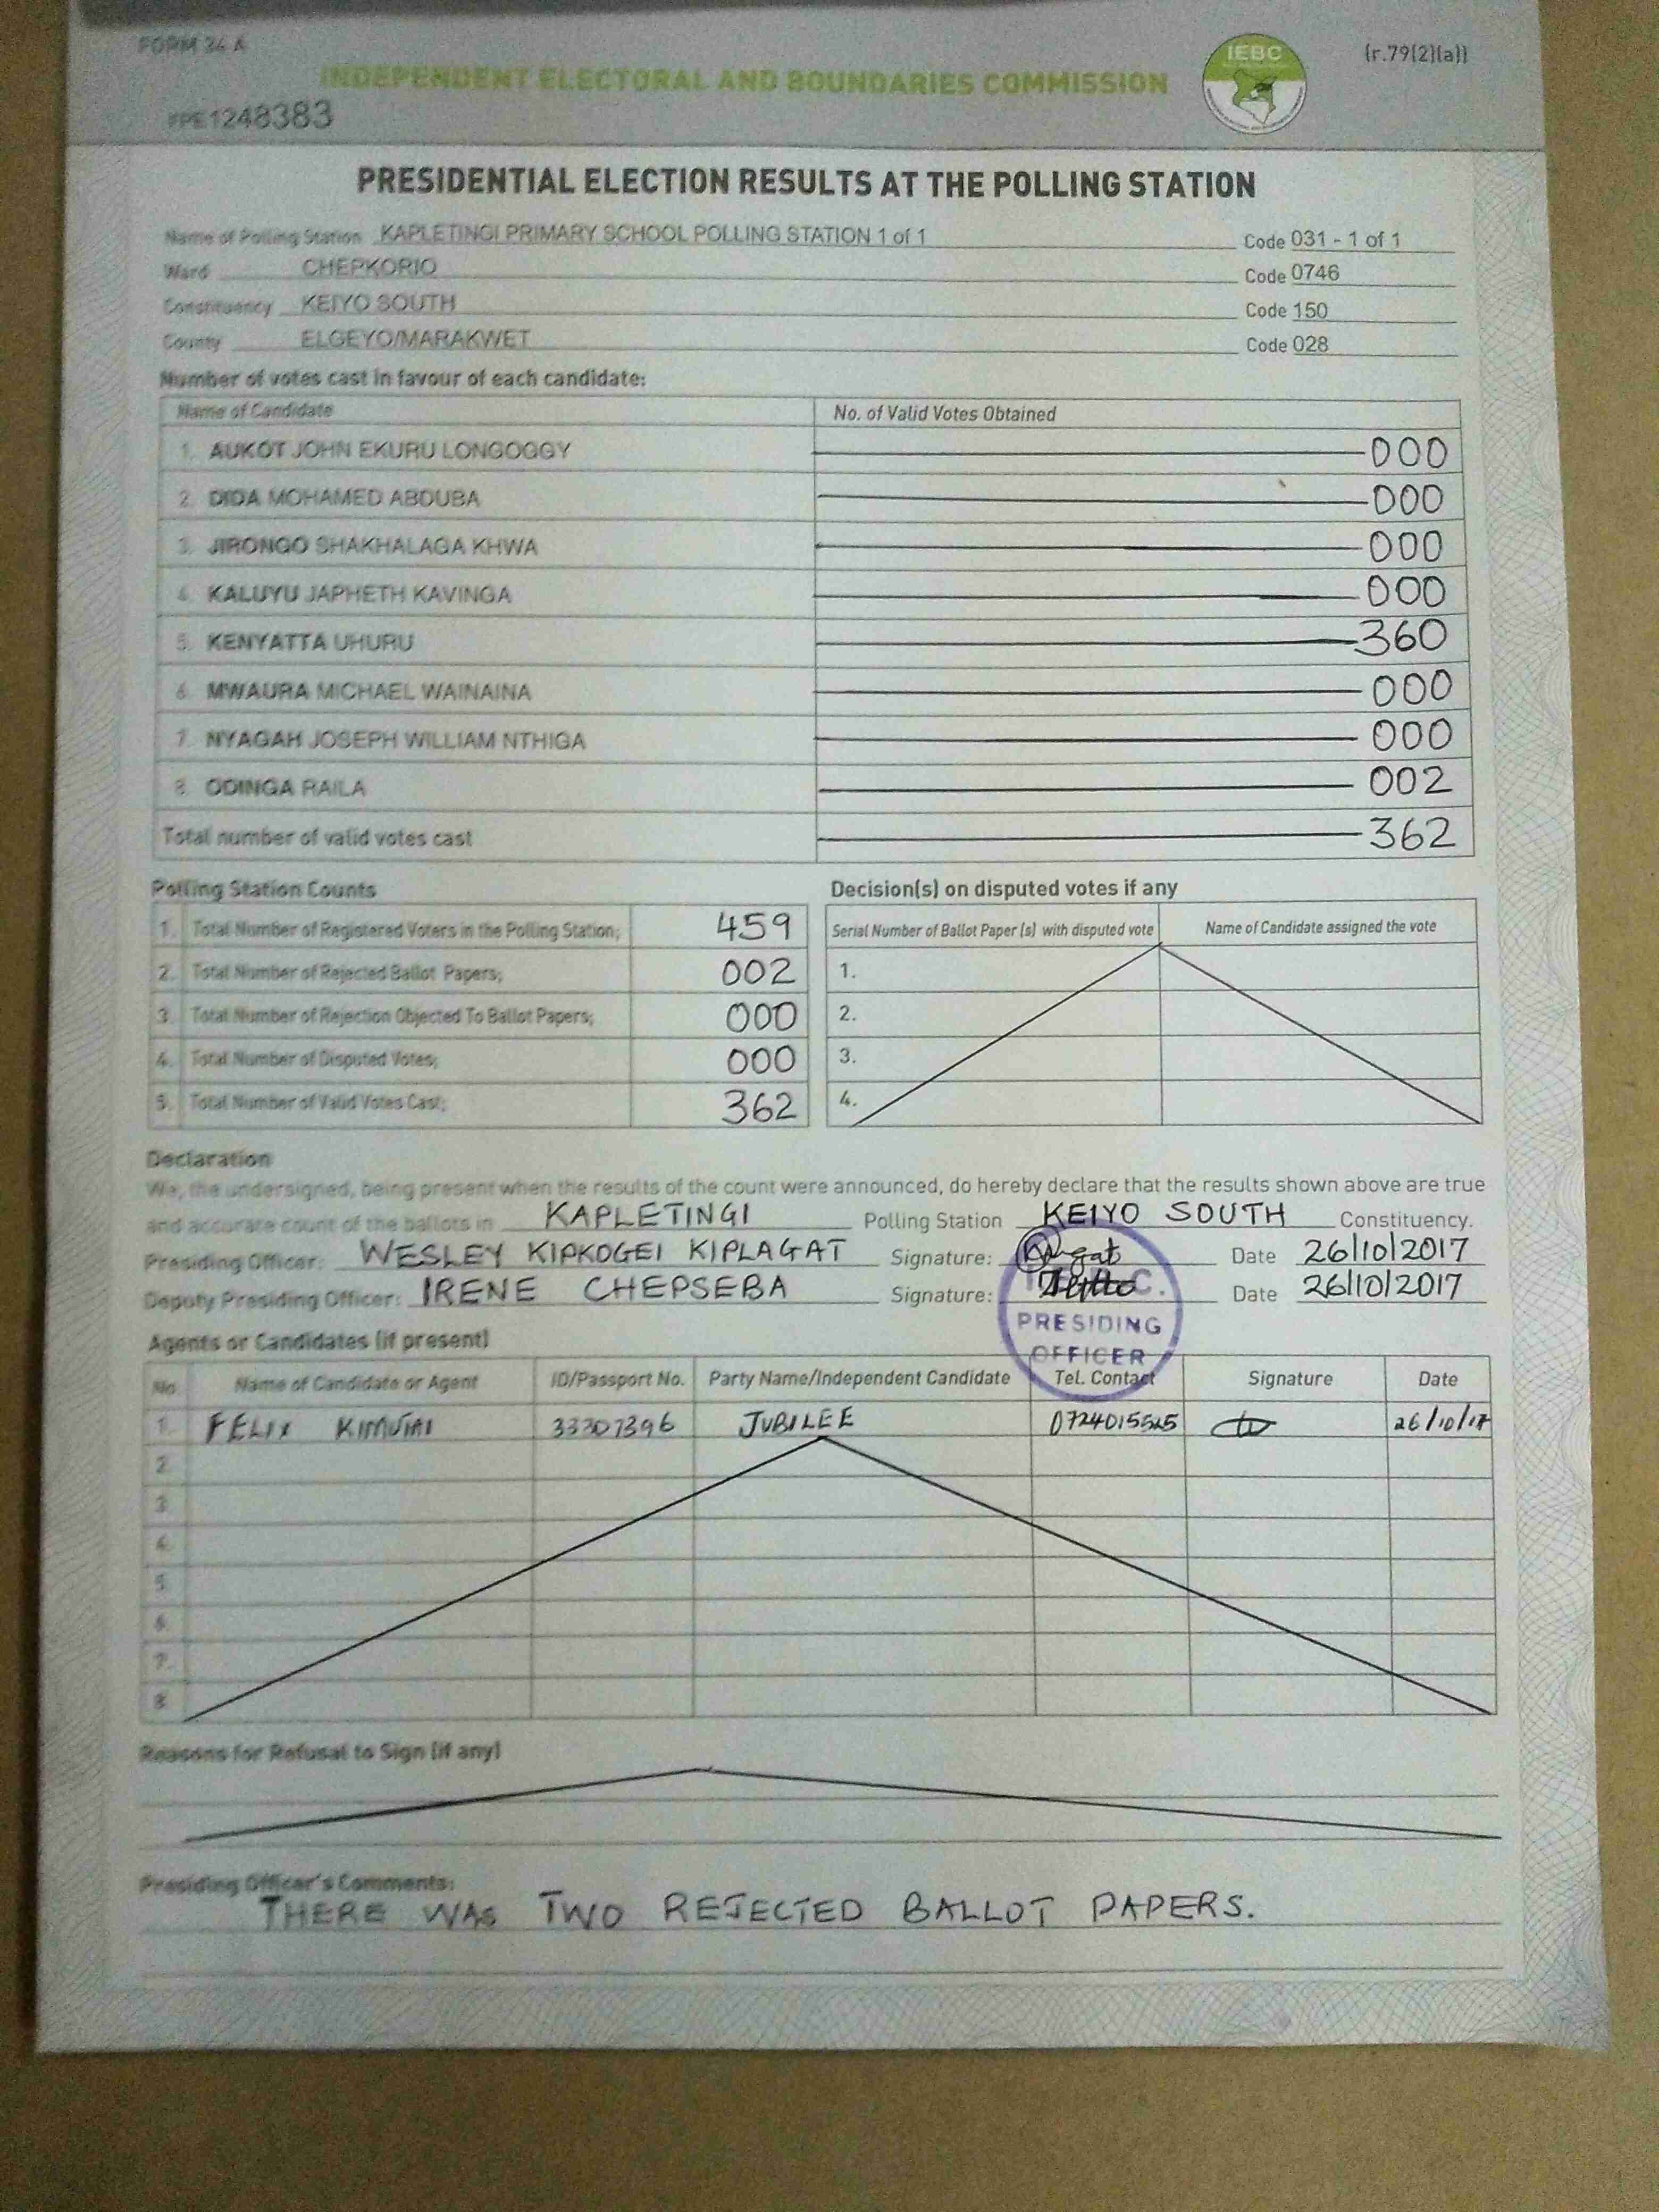 FORM 34 A
(r.79(2)(a))
INDEPENDENT ELECTORAL AND BOUNDARIES COMMISSION
IEBC
PE1248383
PRESIDENTIAL ELECTION RESULTS AT THE POLLING STATION
Name of Polling Station KAPLETINGI PRIMARY SCHOOL POLLING STATION 1 of 1 Code 031 - 1 of 1
Ward CHEPKORIO Code 0746
Constituency KEIYO SOUTH Code 150
County ELGEYO/MARAKWET Code 028
Number of votes cast in favour of each candidate:
Name of Candidate No. of Valid Votes Obtained
1. AUKOT JOHN EKURU LONGOGGY 000
2. DIDA MOHAMED ABDUBA 000
3. JIRONGO SHAKHALAGA KHWA 000
4. KALUYU JAPHETH KAVINGA 000
5. KENYATTA UHURU 360
6. MWAURA MICHAEL WAINAINA 000
7. NYAGAH JOSEPH WILLIAM NTHIGA 000
8. ODINGA RAILA 002
Total number of valid votes cast 362
Polling Station Counts
1. Total Number of Registered Voters in the Polling Station; 459
2. Total Number of Rejected Ballot Papers; 002
3. Total Number of Rejection Objected To Ballot Papers; 000
4. Total Number of Disputed Votes; 000
5. Total Number of Valid Votes Cast; 362
Decision(s) on disputed votes if any
Serial Number of Ballot Paper (s) with disputed vote Name of Candidate assigned the vote
1.
2.
3.
4.
Declaration
We, the undersigned, being present when the results of the count were announced, do hereby declare that the results shown above are true
and accurate count of the ballots in KAPLETINGI Polling Station KEIYO SOUTH Constituency.
Presiding Officer: WESLEY KIPKOGEI KIPLAGAT Signature: Date 26/10/2017
Deputy Presiding Officer: IRENE CHEPSEBA Signature: Date 26/10/2017
PRESIDING
OFFICER
Agents or Candidates (if present)
No Name of Candidate or Agent ID/Passport No. Party Name/Independent Candidate Tel. Contact Signature Date
1. FELIX 33307396 JUBILEE 26/10/17
2.
3.
4.
5.
6.
7.
8.
Reasons for Refusal to Sign (if any)
Presiding Officer's Comments:
THERE WAS TWO REJECTED BALLOT PAPERS.